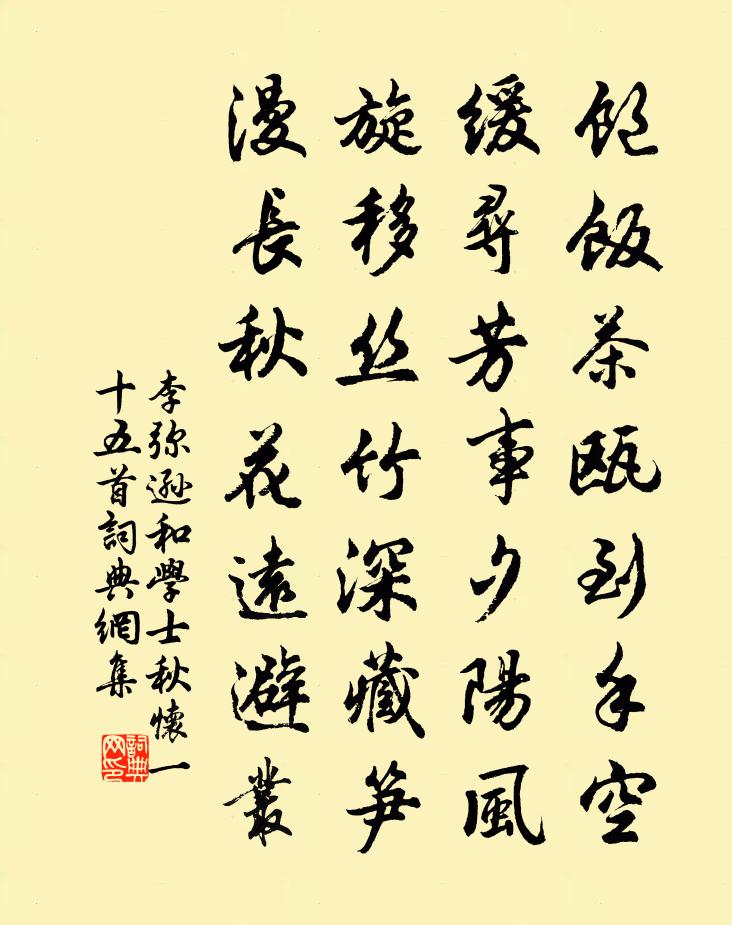 飽飯茶甌到手空
緩尋芳事夕陽風
旋移丝竹深藏笋
漫長秋花遠避叢
李弥遜和學士秋懷一
十五首詞典網集
詞典网印